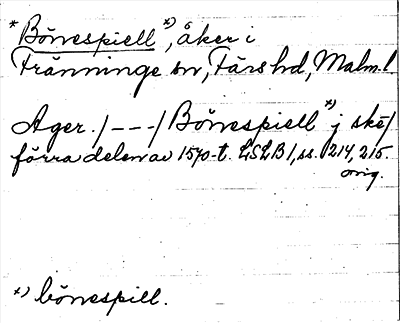 *Börrespiell*), åker i
Fränninge sn, Färs hd, Malm. l.
Ager. /---/ Börrespiell*) j ske /
förra delen av 1570-t. LSLB 1, ss. 214, 215.
orig.
*) börrespill.